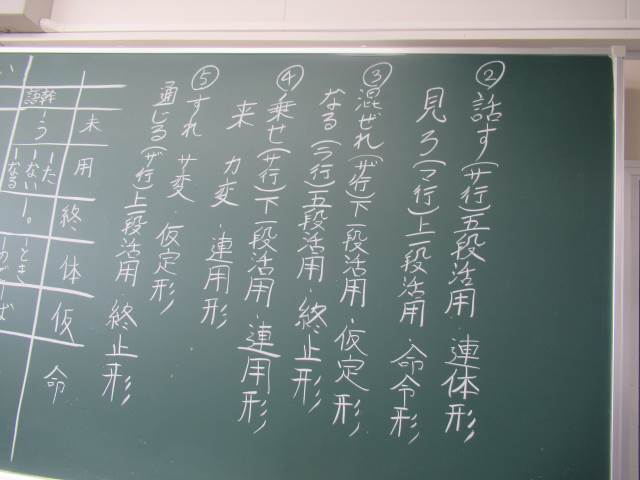 ② 話す(サ行)五段活用・連体形
見ろ(マ行)上一段活用・命令形
③ 混ぜれ(ザ行)下一段活用・仮定形
なる(ラ行)五段活用・終止形
④ 乗せ(サ行)下一段活用・連用形
来 カ変・連用形
⑤ すれ サ変・仮定形
通じる(ザ行)上一段活用・終止形
未 用 終 体 仮 命
語幹 ーう ーた ーない ーなる ー。 ーとき